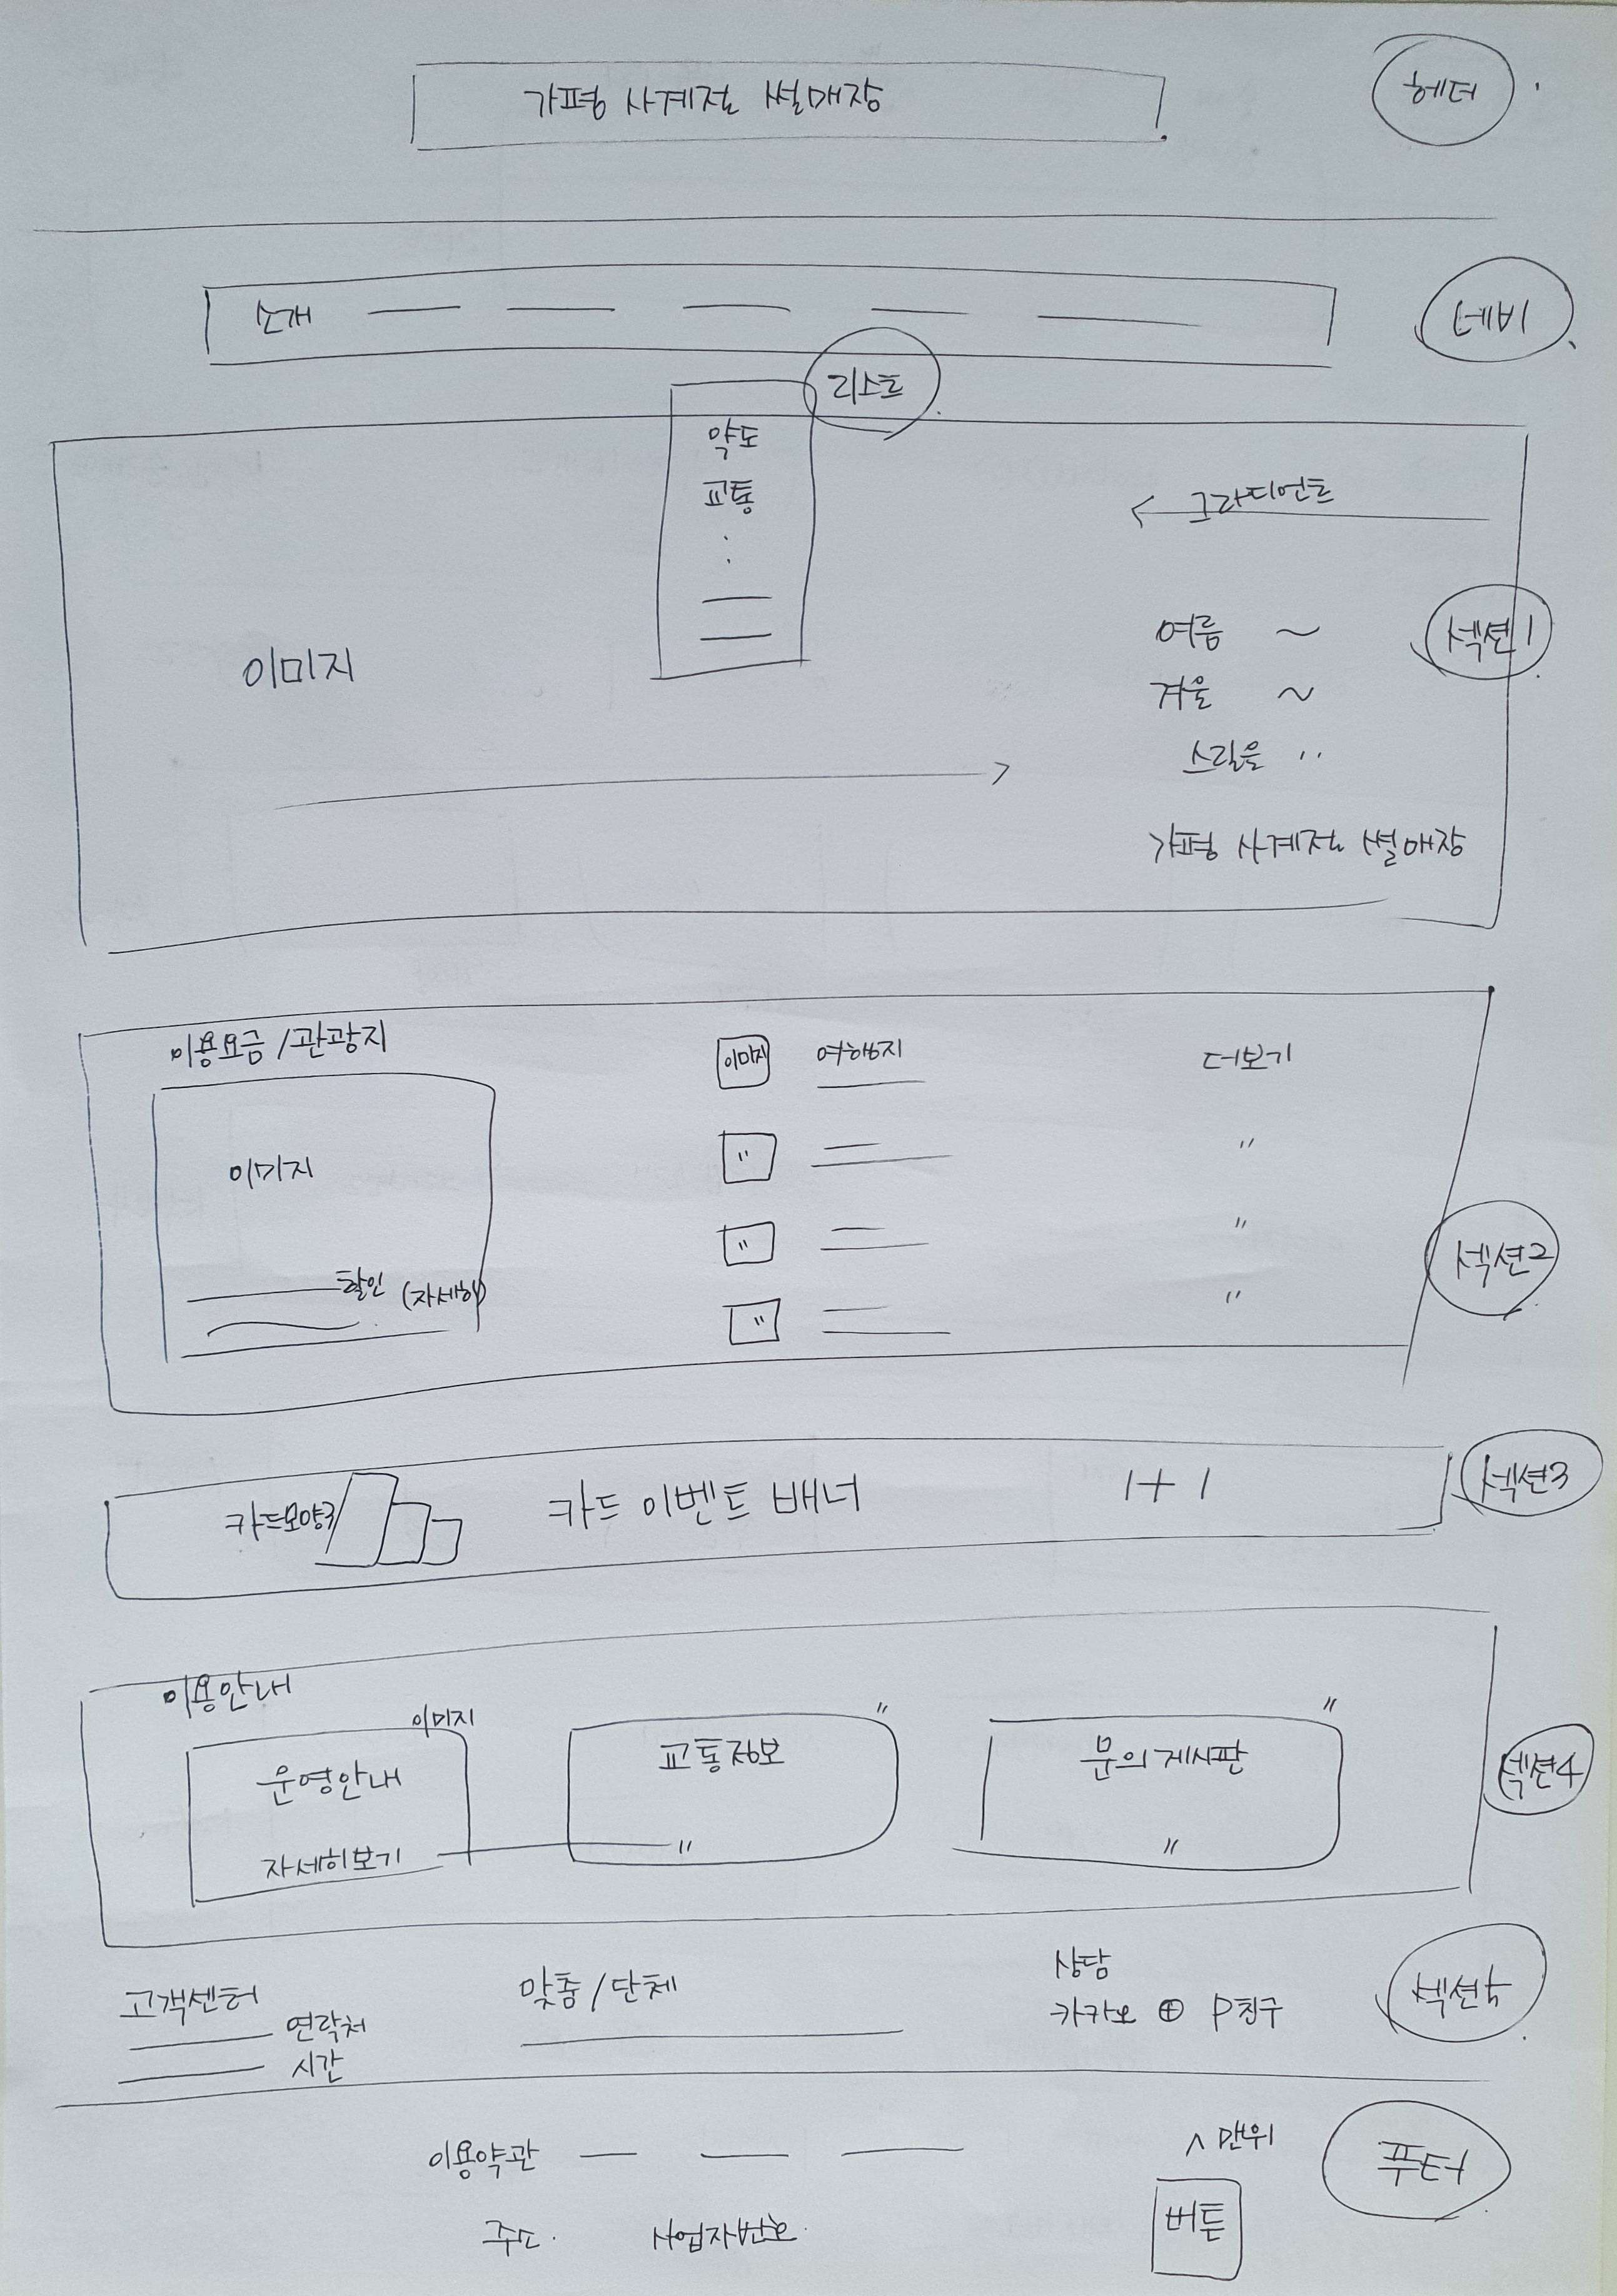 가평 사계절 썰매장
헤더
소개
네비
리스트
약도
교통
그라디언트
이미지
여름 ~
겨울 ~
스릴을 ..
섹션1
가평 사계절 썰매장
이용요금 / 관광지
이미지
여행지
더보기
이미지
"
"
"
"
"
"
할인 (자세히)
섹션2
카드모양3
카드 이벤트 배너
1+1
섹션3
이용안내
이미지
"
"
운영안내
교통정보
문의게시판
자세히보기
"
"
섹션4
고객센터
연락처
시간
맞춤 / 단체
상담
카카오 ⊕ P친구
섹션5
이용약관
^ 맨위
푸터
주소.
사업자번호.
버튼